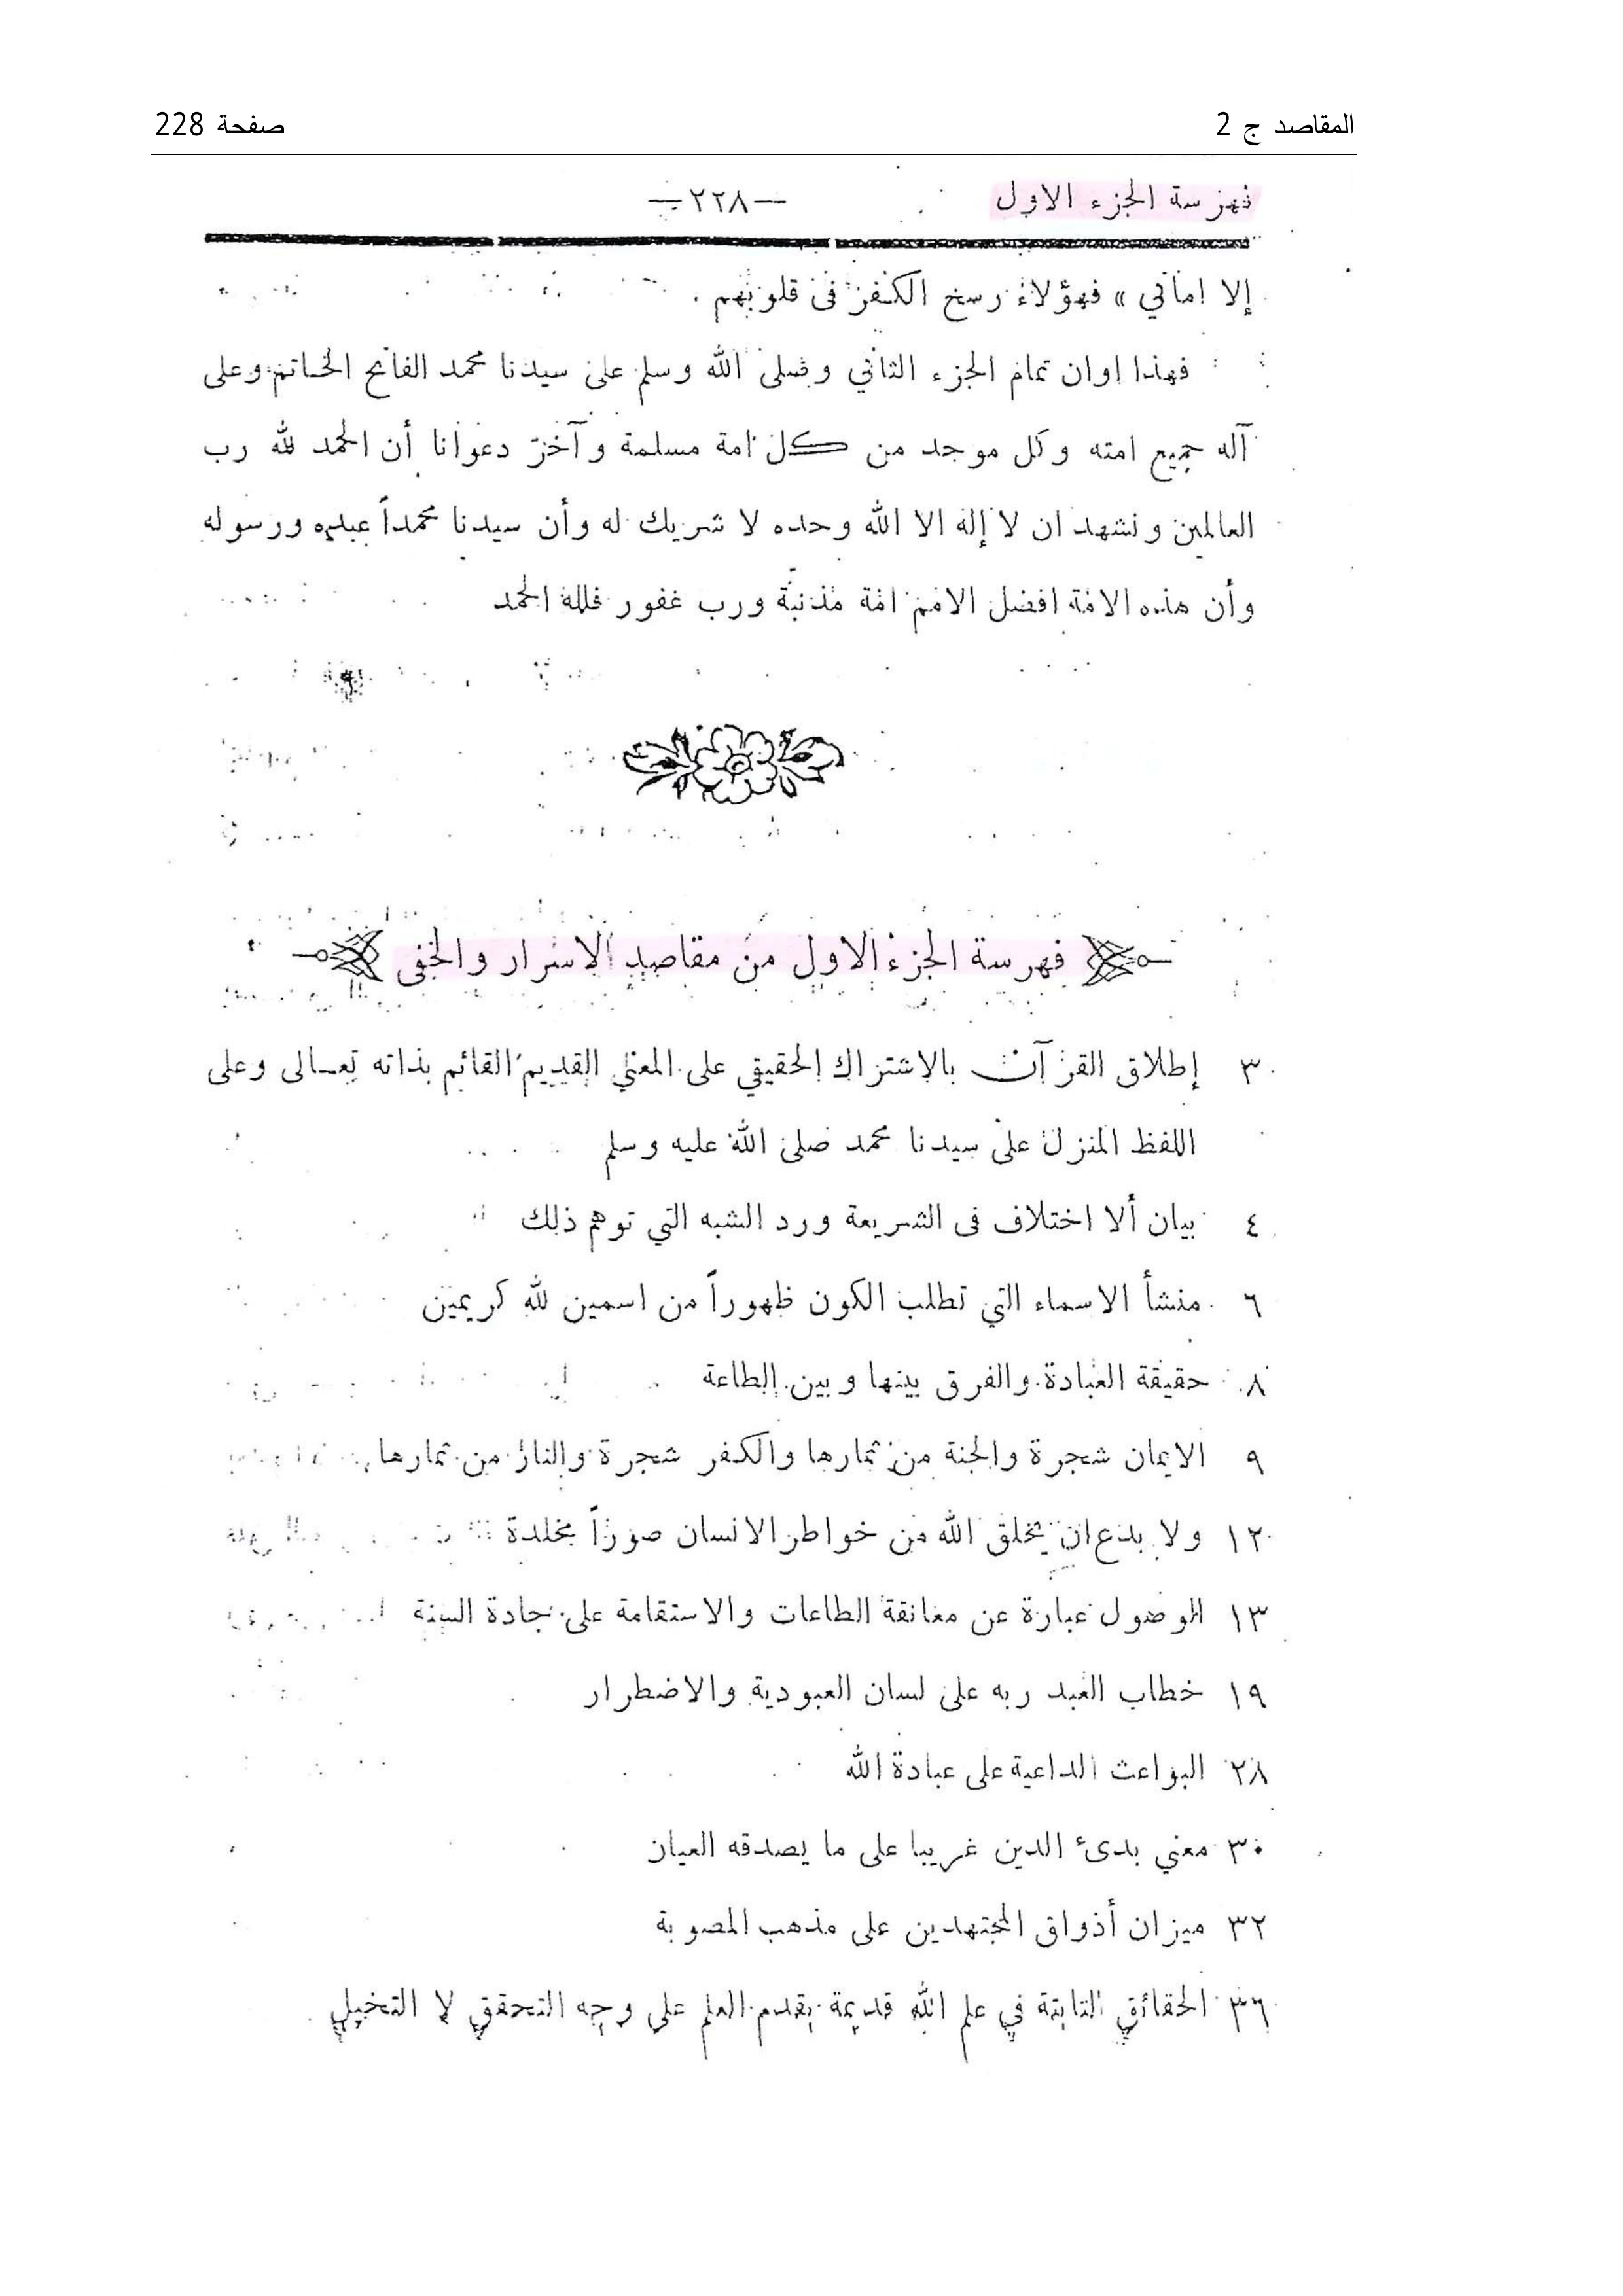 المقاصد ج 2
صفحة 228
فهرسة الجزء الاول
—٢٢٨—
إلا اماني » فهؤلاء رسخ الكفر فى قلوبهم .
فهذا اوان تمام الجزء الثاني وصلى الله وسلم على سيدنا محمد الفاتح الخاتم وعلى
آله جميع امته وكل موجد من كل امة مسلمة وآخر دعوانا أن الحمد لله رب
العالمين ونشهد ان لا إله الا الله وحده لا شريك له وأن سيدنا محمداً عبده ورسوله
وأن هذه الامة افضل الامم امة مذنبة ورب غفور فلله الحمد
فهرسة الجزء الاول من مقاصد الاسرار والخفى
٣ إطلاق القرآن بالاشتراك الحقيقي على المعني القديم القائم بذاته تعالى وعلى
اللفظ المنزل على سيدنا محمد صلى الله عليه وسلم
٤ بيان ألا اختلاف فى الشريعة ورد الشبه التي توهم ذلك
٦ منشأ الاسماء التي تطلب الكون ظهوراً من اسمين لله كريمين
٨ حقيقة العبادة والفرق بينها وبين الطاعة
٩ الايمان شجرة والجنة من ثمارها والكفر شجرة والنار من ثمارها
١٢ ولا بدع ان يخلق الله من خواطر الانسان صوراً مخلدة
١٣ الوصول عبارة عن معانقة الطاعات والاستقامة على جادة السنة
١٩ خطاب العبد ربه على لسان العبودية والاضطرار
٢٨ البواعث الداعية على عبادة الله
٣٠ معني بدىء الدين غريبا على ما يصدقه العيان
٣٢ ميزان أذواق المجتهدين على مذهب المصوبة
٣٦ الحقائق الثابتة في علم الله قديمة بقدم العلم على وجه التحقق لا التخيل